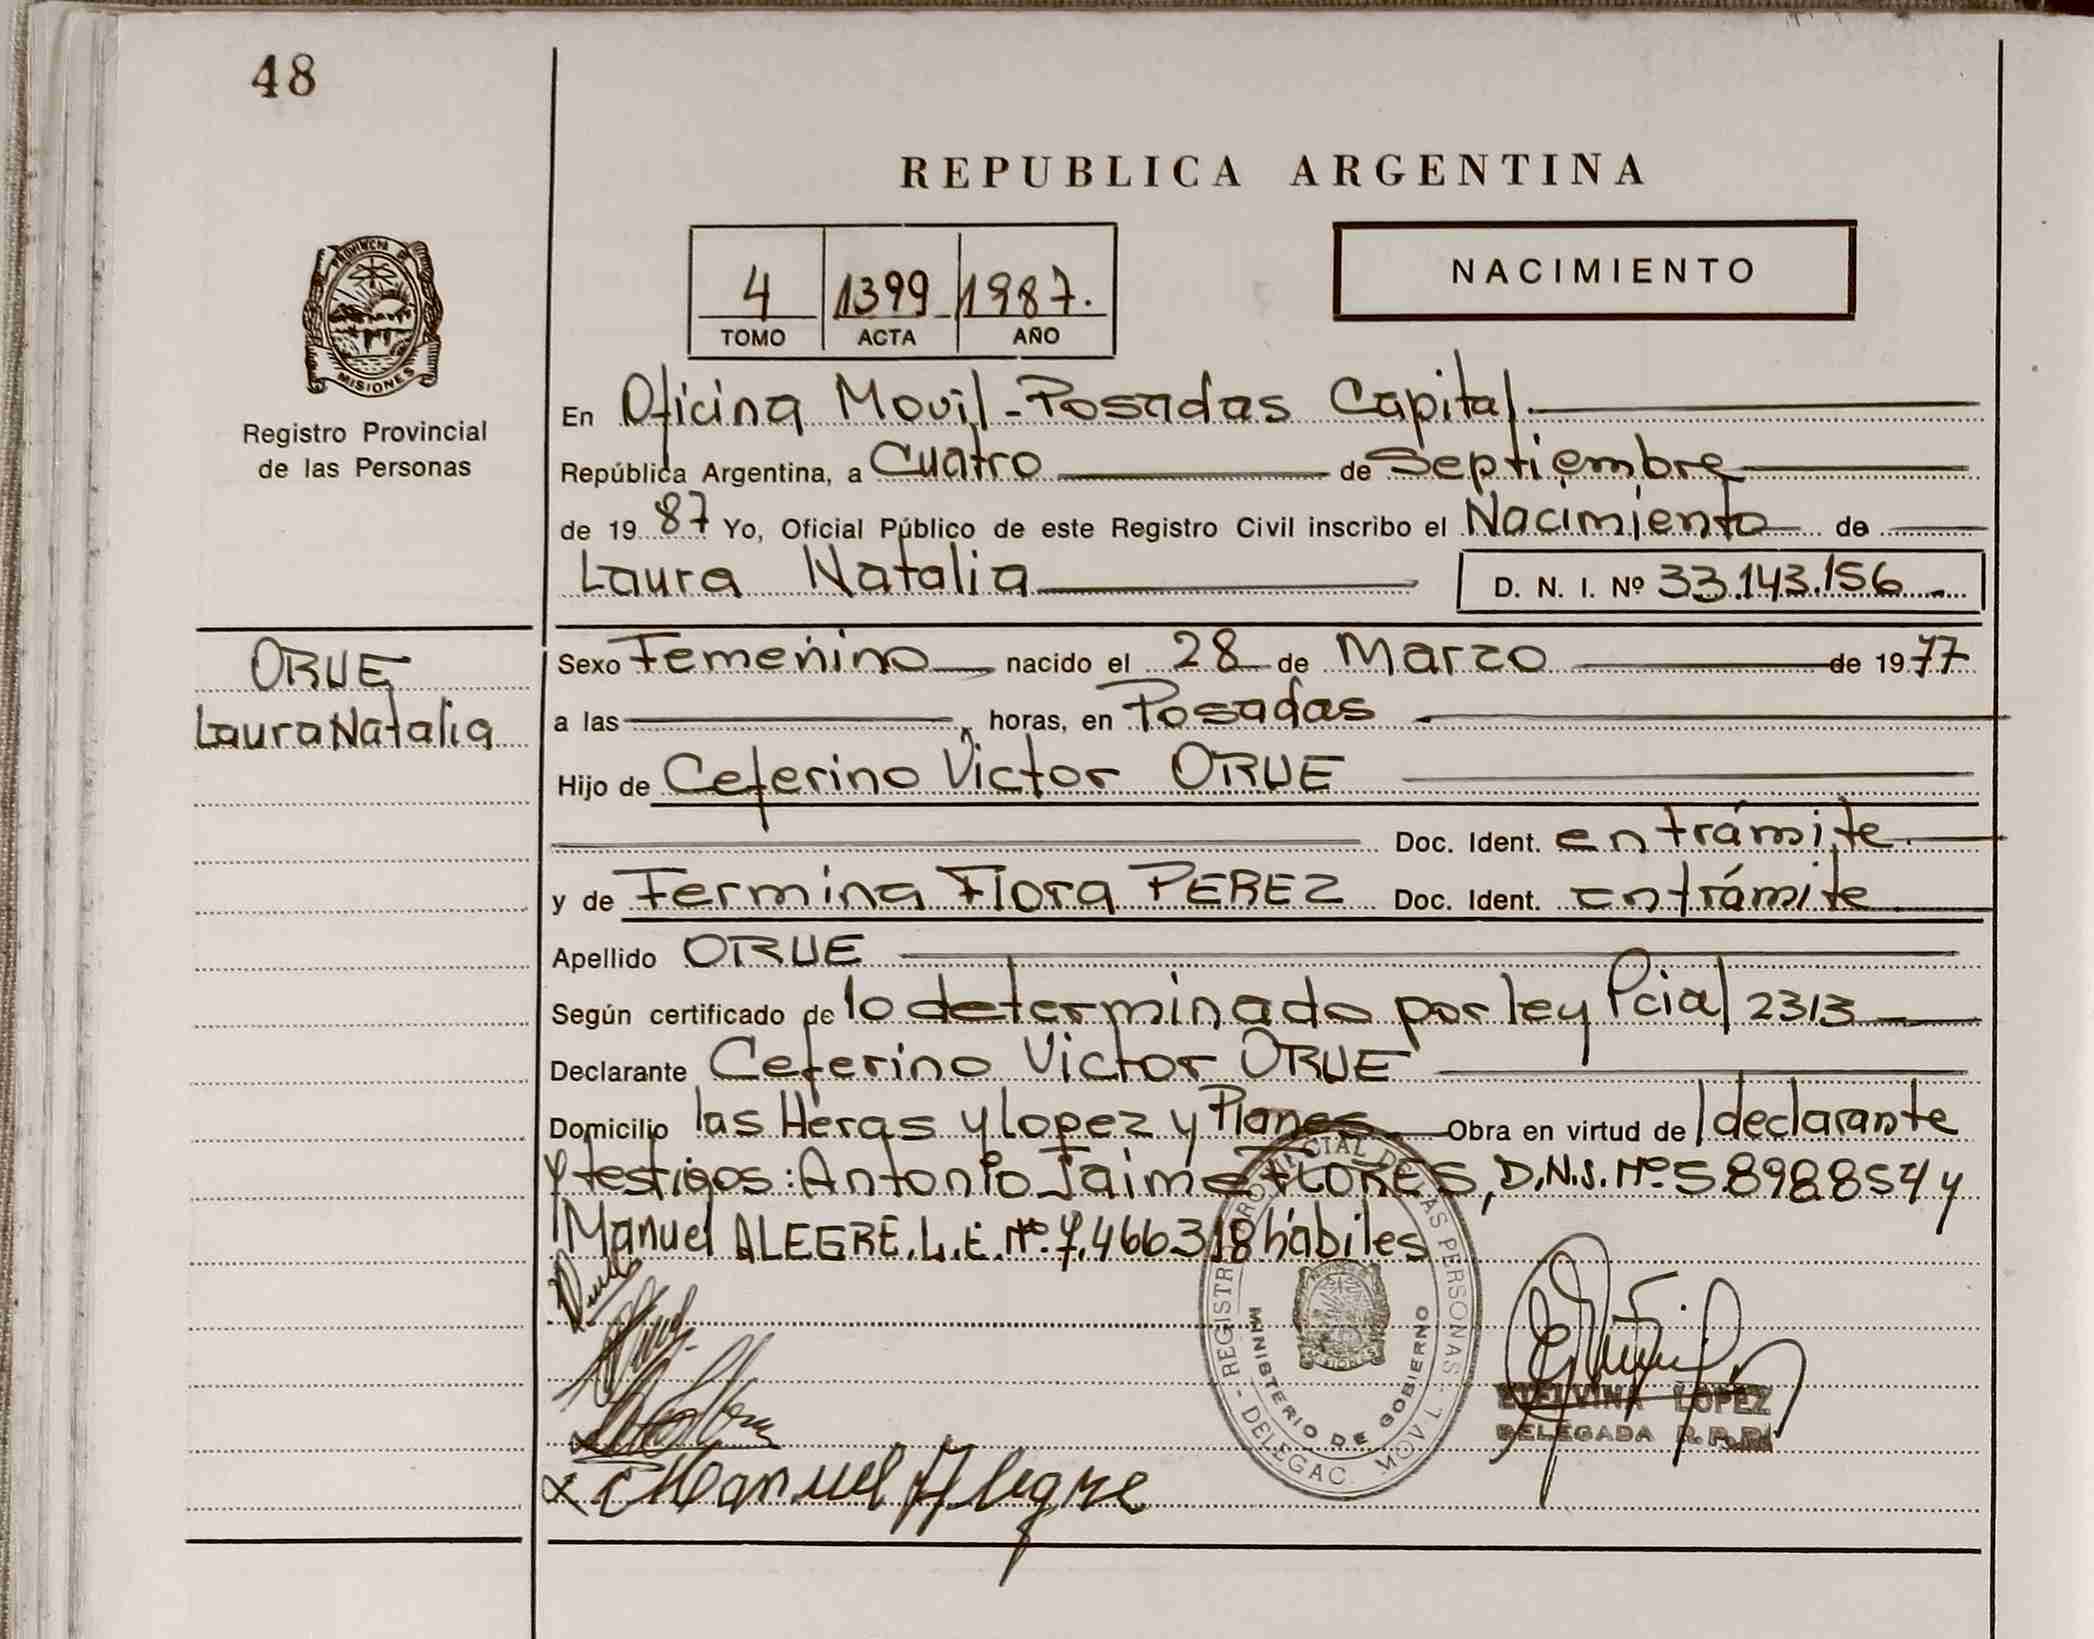 48
REPUBLICA ARGENTINA
NACIMIENTO
4 1399 1987.
TOMO ACTA AÑO
PROVINCIA DE
MISIONES
Registro Provincial
de las Personas
En Oficina Movil-Posadas Capital
República Argentina, a Cuatro de Septiembre
de 19 87 Yo, Oficial Público de este Registro Civil inscribo el Nacimiento de
Laura Natalia D. N. I. Nº 33.143.156
ORUE
Laura Natalia
Sexo Femenino nacido el 28 de Marzo de 19 77
a las horas, en Posadas
Hijo de Ceferino Victor ORUE
Doc. Ident. en trámite
y de Fermina Flora PEREZ Doc. Ident. en trámite
Apellido ORUE
Según certificado de lo determinado por ley Pcial 2313
Declarante Ceferino Victor ORUE
Domicilio las Heras y lopez y Planes Obra en virtud de l declarante
y testigos: Antonio Jaime FLORES, D.N.I. Nº 5.898.854 y
Manuel ALEGRE. L.E. Nº 7.466318 hábiles
REGISTRO PROVINCIAL DE LAS PERSONAS
MINISTERIO DE GOBIERNO
DELEGAC. MOVIL
ETELVINA LOPEZ
DELEGADA R.P.P.
Manuel Alegre